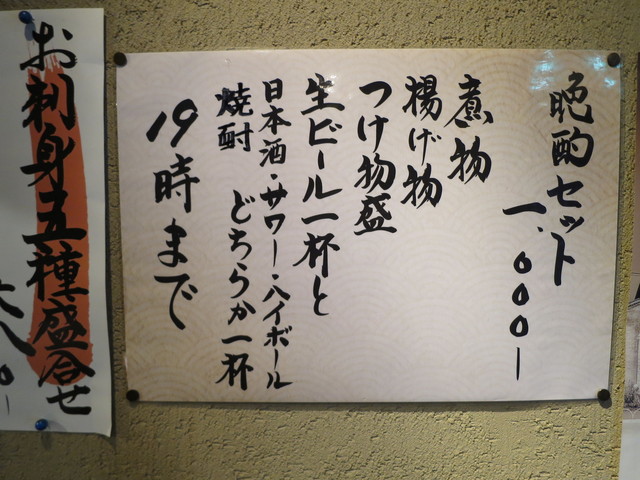 晩酌セット
一、〇〇〇ー
煮物
揚げ物
つけ物盛
生ビール一杯と
日本酒・サワー・ハイボール
焼酎 どちらか一杯
19時まで
お刺身五種盛合せ